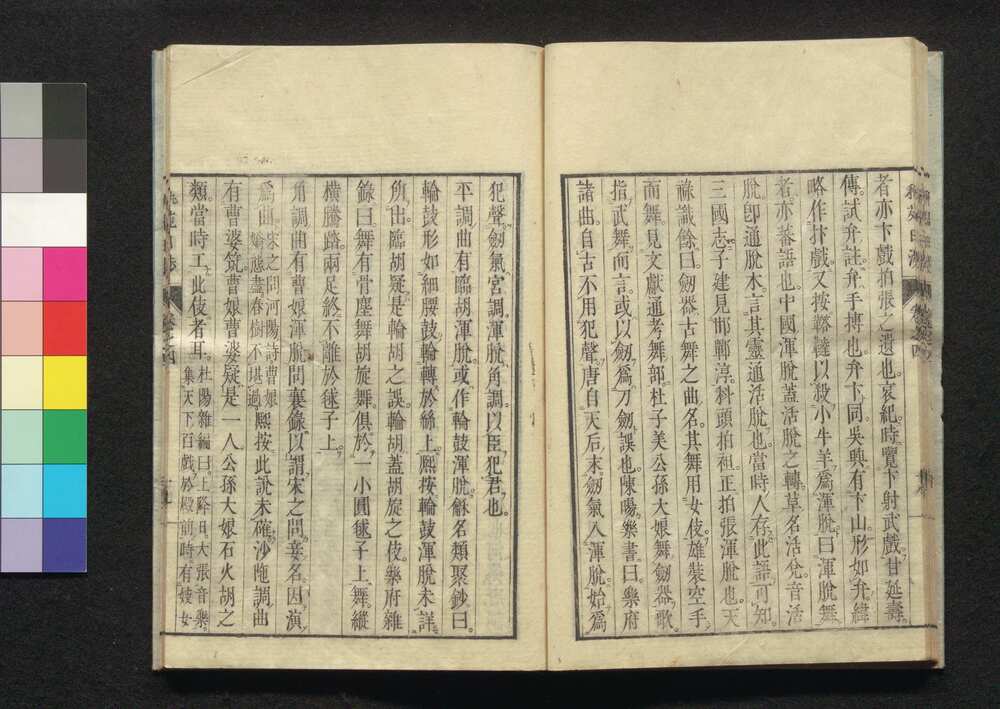 者亦卞戲拍張之遺也哀紀時覽卞射武戲甘延壽
傳試弁註弁手搏也弁卞同吳興有卞山形如弁緯
略作抃戲又按韃以殺小牛羊爲渾脫曰渾脫舞
者亦蕃語也中國渾脫蓋活脫之轉草名活兌音活
脫卽通脫木言其靈通活脫也當時人存此語可知
三國志子建見邯鄲淳科頭拍袒正拍張渾脫也天
祿識餘曰劔器古舞之曲名其舞用女伎雄裝空手
而舞見文獻通考舞部杜子美公孫大娘舞劔器歌
指武舞而言或以劔爲刀劔誤也陳暘樂書曰樂府
諸曲自古不用犯聲唐自天后末劔氣入渾脫始爲
犯聲劔氣宮調渾脫角調以臣犯君也
平調曲有臨胡渾脫或作輪鼓渾脫龢名類聚鈔曰
輪鼓形如細腰鼓輪轉於絲上熙按輪鼓渾脫未詳
所出臨胡疑是輪胡之誤輪胡蓋胡旋之伎樂府雜
錄曰舞有骨塵舞胡旋舞俱於一小圓毬子上舞縱
橫騰踏兩足終不離於毬子上
角調曲有曹娘渾脫問童錄以謂宋之問妾名因演
爲曲宋之問河陽詩曹娘嬌態盡春樹不堪過熙按此說未確沙陁調曲
有曹婆筑曹娘曹婆疑是一人公孫大娘石火胡之
類當時工此伎者耳杜陽雜編曰上降日大張音樂集天下百戲於殿前時有妓女